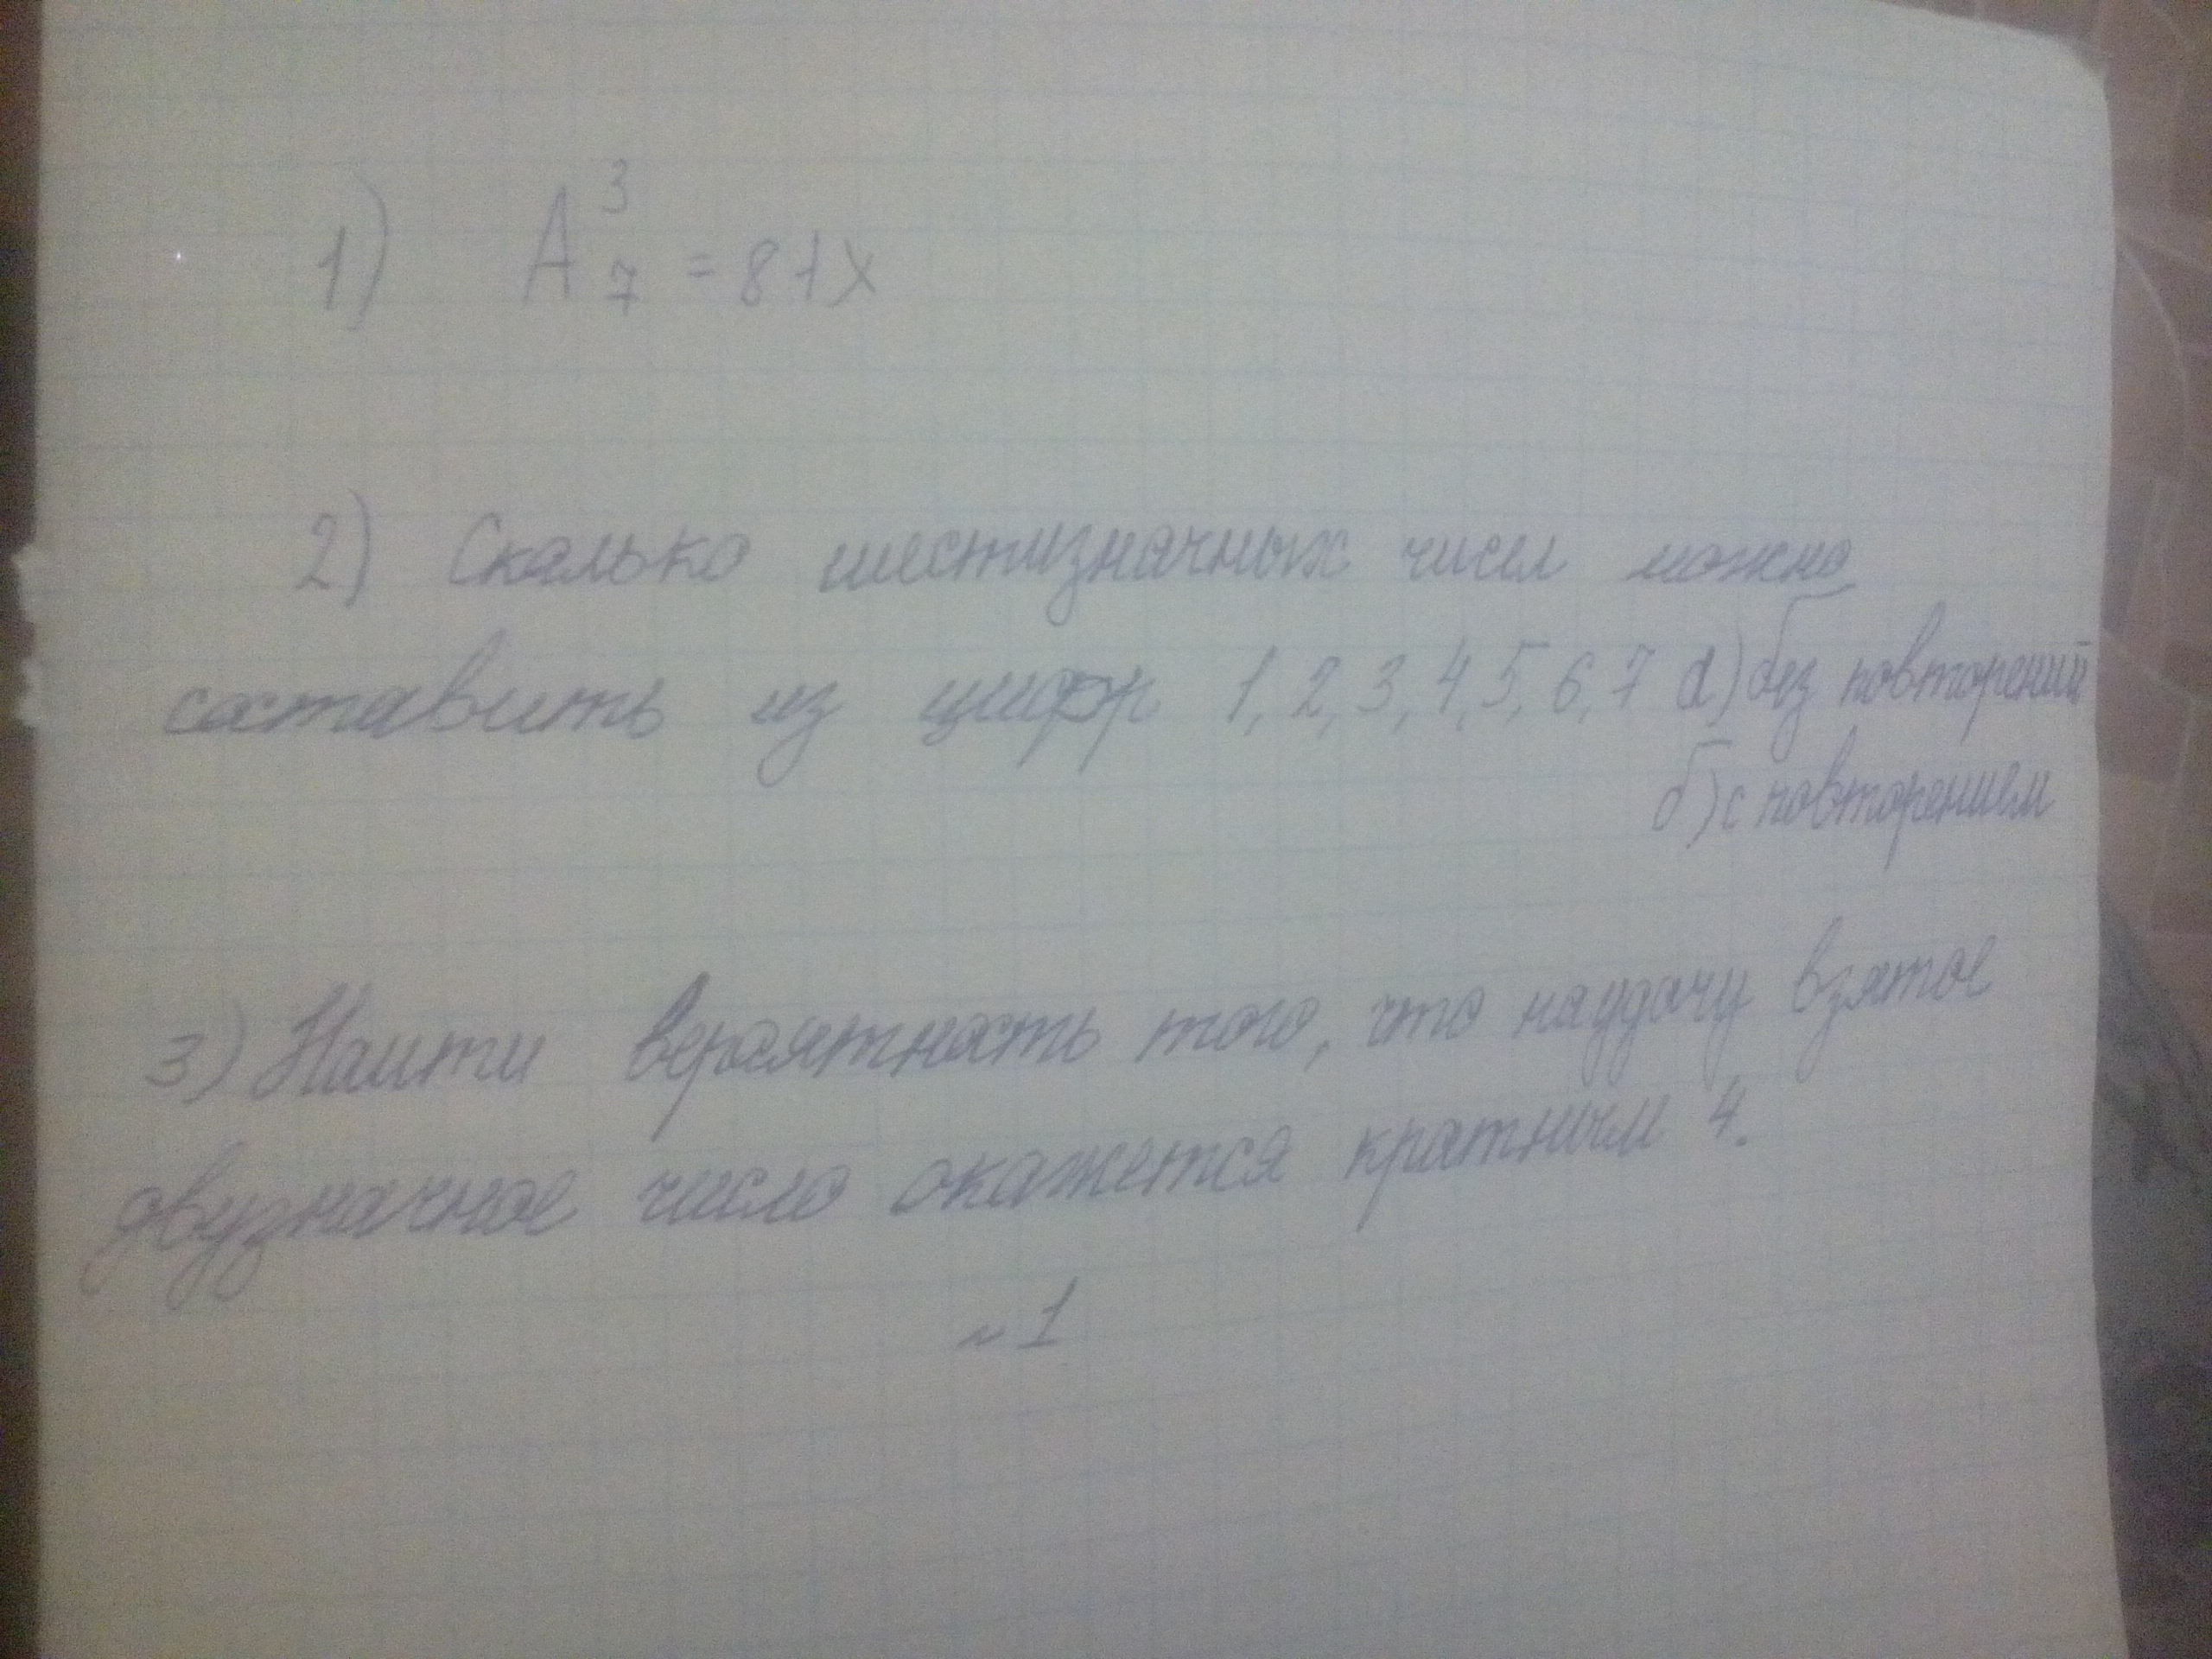 1) A₇³ = 8+x
2) Сколько шестизначных чисел можно
составить из цифр 1, 2, 3, 4, 5, 6, 7 а) без повторений
б) с повторением
3) Найти вероятность того, что наудачу взятое
двузначное число окажется кратным 4.
~1